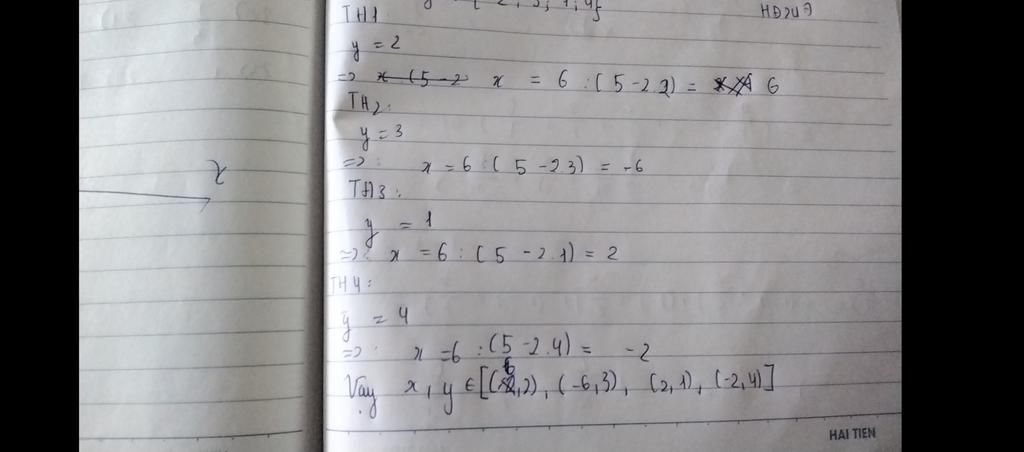 TH1
y = 2
=> x = 6 : (5 - 2.2) = 6
TH2:
y = 3
=> x = 6 : (5 - 2.3) = -6
x
TH3:
y = 1
=> x = 6 : (5 - 2.1) = 2
TH4:
y = 4
=> x = 6 : (5 - 2.4) = -2
Vậy x, y ∈ [(6,2), (-6,3), (2,1), (-2,4)]
HAI TIEN